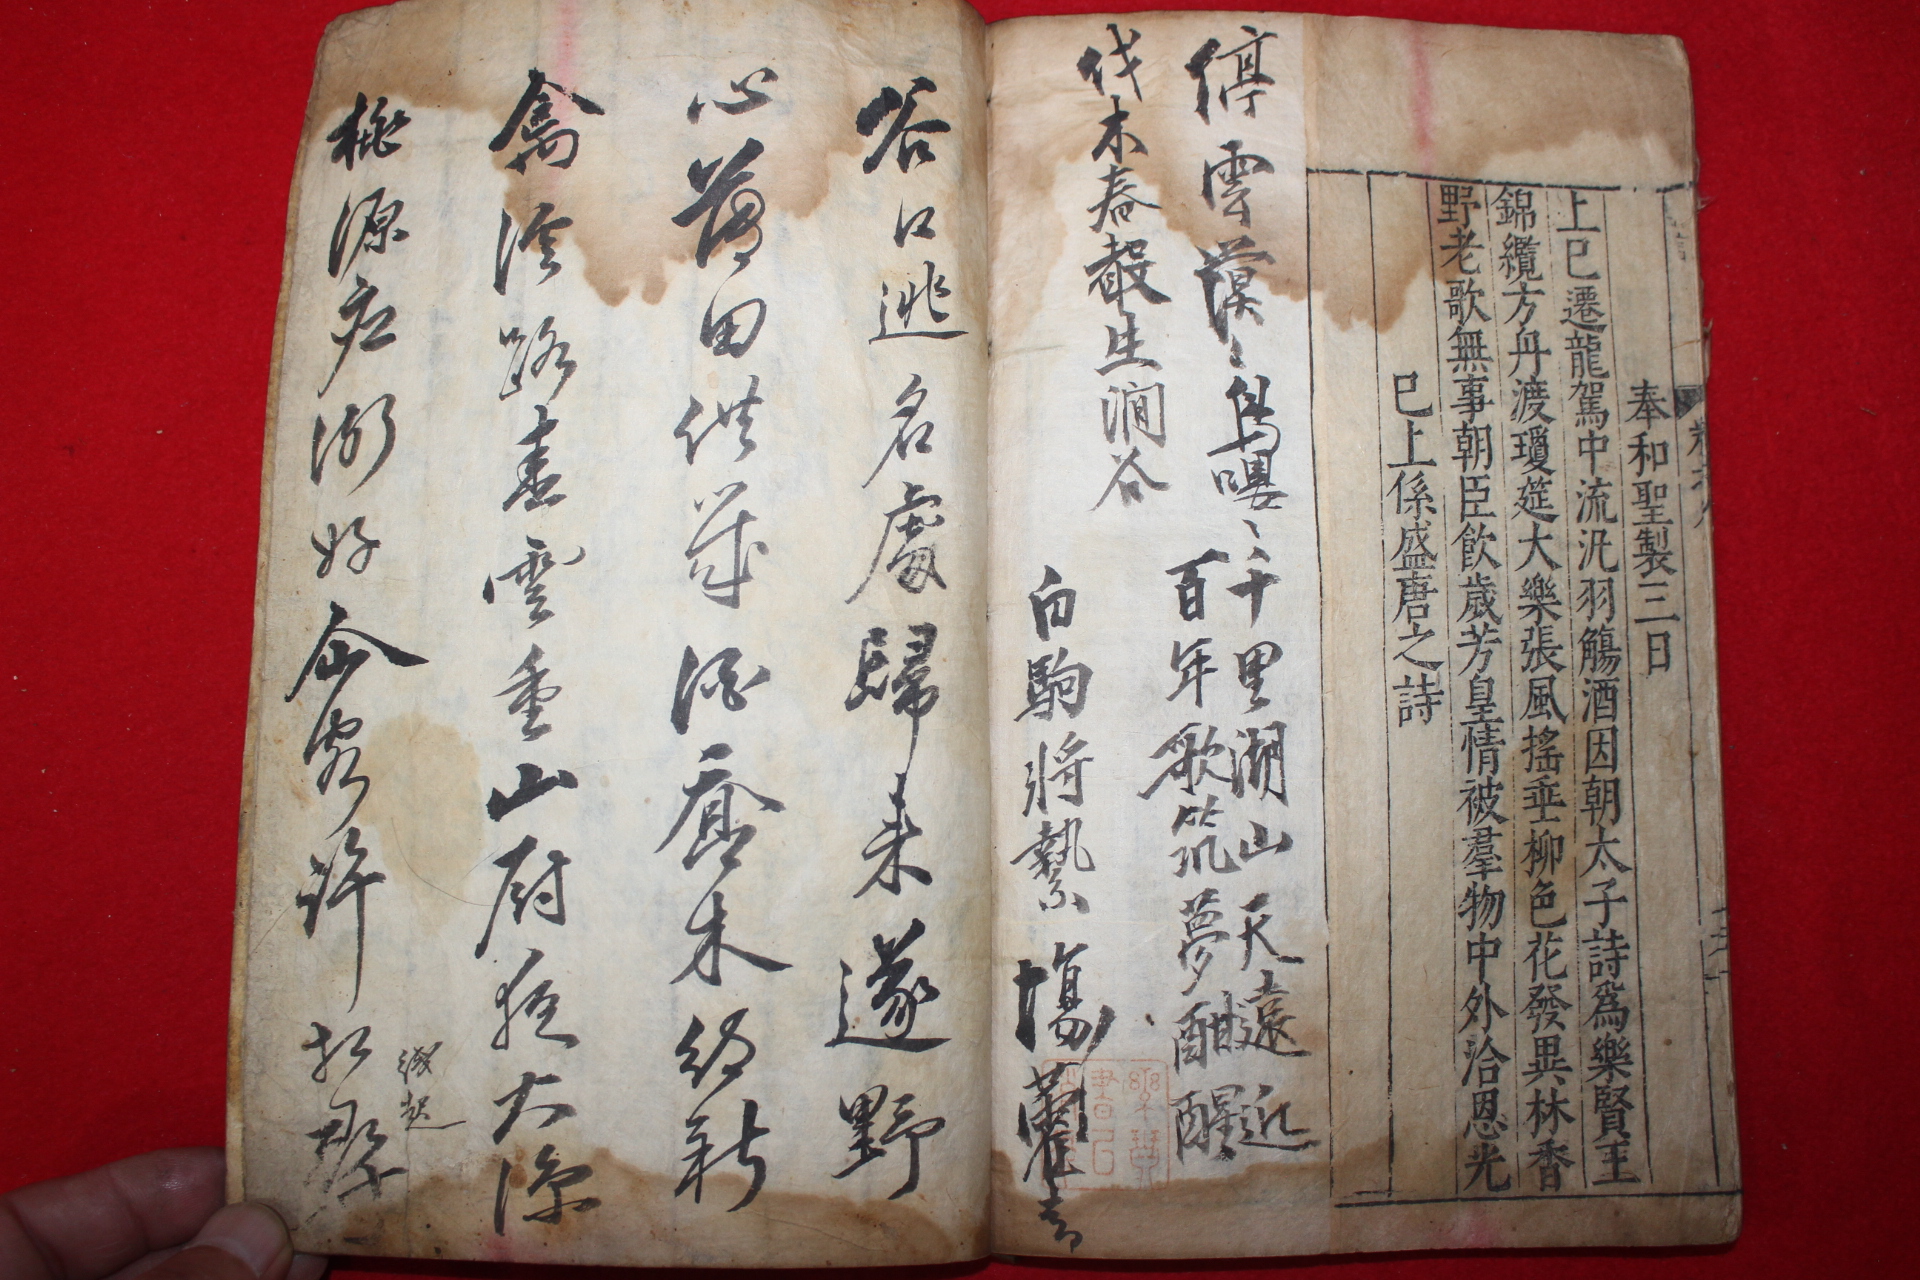 奉和聖製三日
上巳遷龍駕中流汎羽觴酒因朝太子詩爲樂賢王
錦纜方舟渡瓊筵大樂張風搖垂柳色花發異林香
野老歌無事朝臣飮歲芳皇情被羣物中外洽恩光
巳上係盛唐之詩
停雲漠〻鳥嚶〻千里湖山天遠近
百年歌筑夢酣醒
伐木春聲生澗谷
白駒將縶場藿
谷口逃名處歸來遂野
心薄田供歲酒喬木
禽路雲重山廚
桃源應好仙客許相